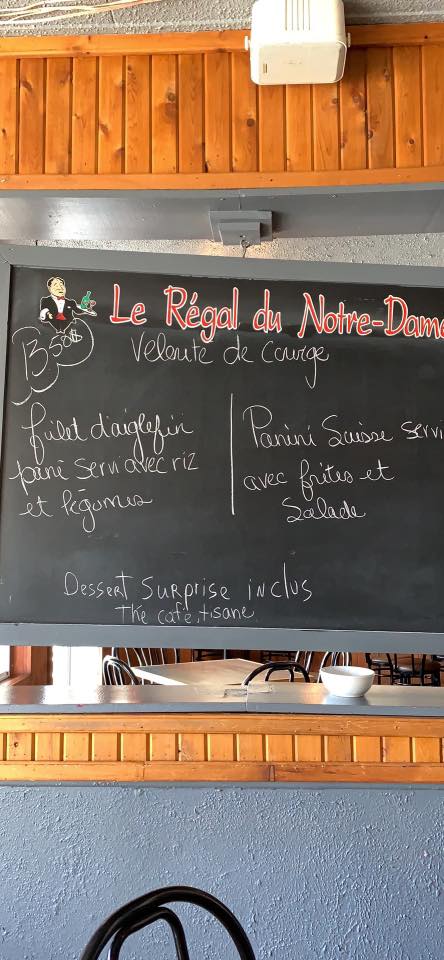 Le Régal du Notre-Dame
13 50$
Velouté de Courge
filet d'aiglefin
pané servi avec riz
et légumes
Panini Suisse servi
avec frites et
Salade
Dessert Surprise inclus
Thé café, tisane